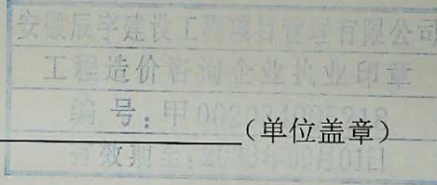 安徽辰宇建设工程项目管理有限公司
工程造价咨询企业执业印章
编号:甲
(单位盖章)
有效期至: 月01日